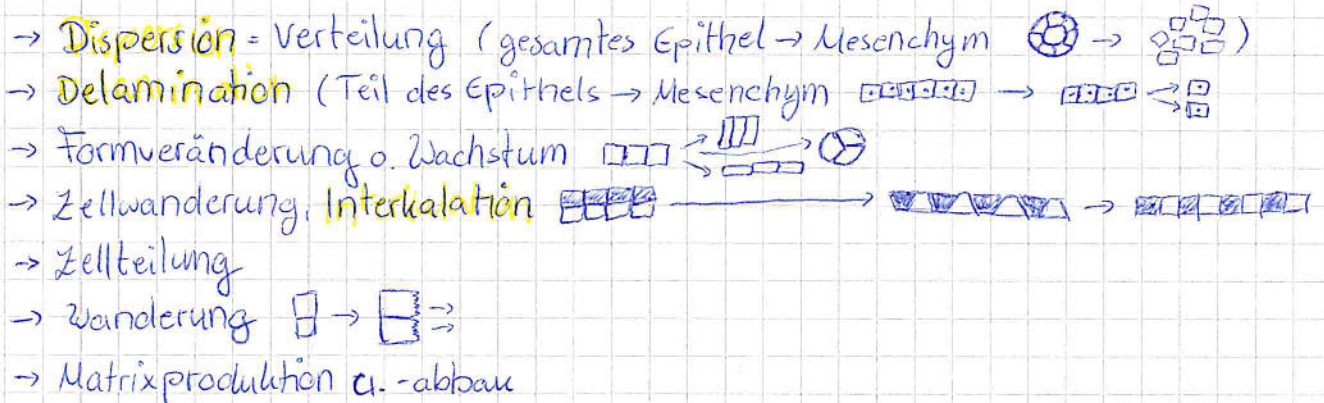 → Dispersion = Verteilung (gesamtes Epithel → Mesenchym → )
→ Delamination (Teil des Epithels → Mesenchym →
→ Formveränderung o. Wachstum
→ Zellwanderung, Interkalation → →
→ Zellteilung
→ Wanderung →
→ Matrixproduktion u. -abbau